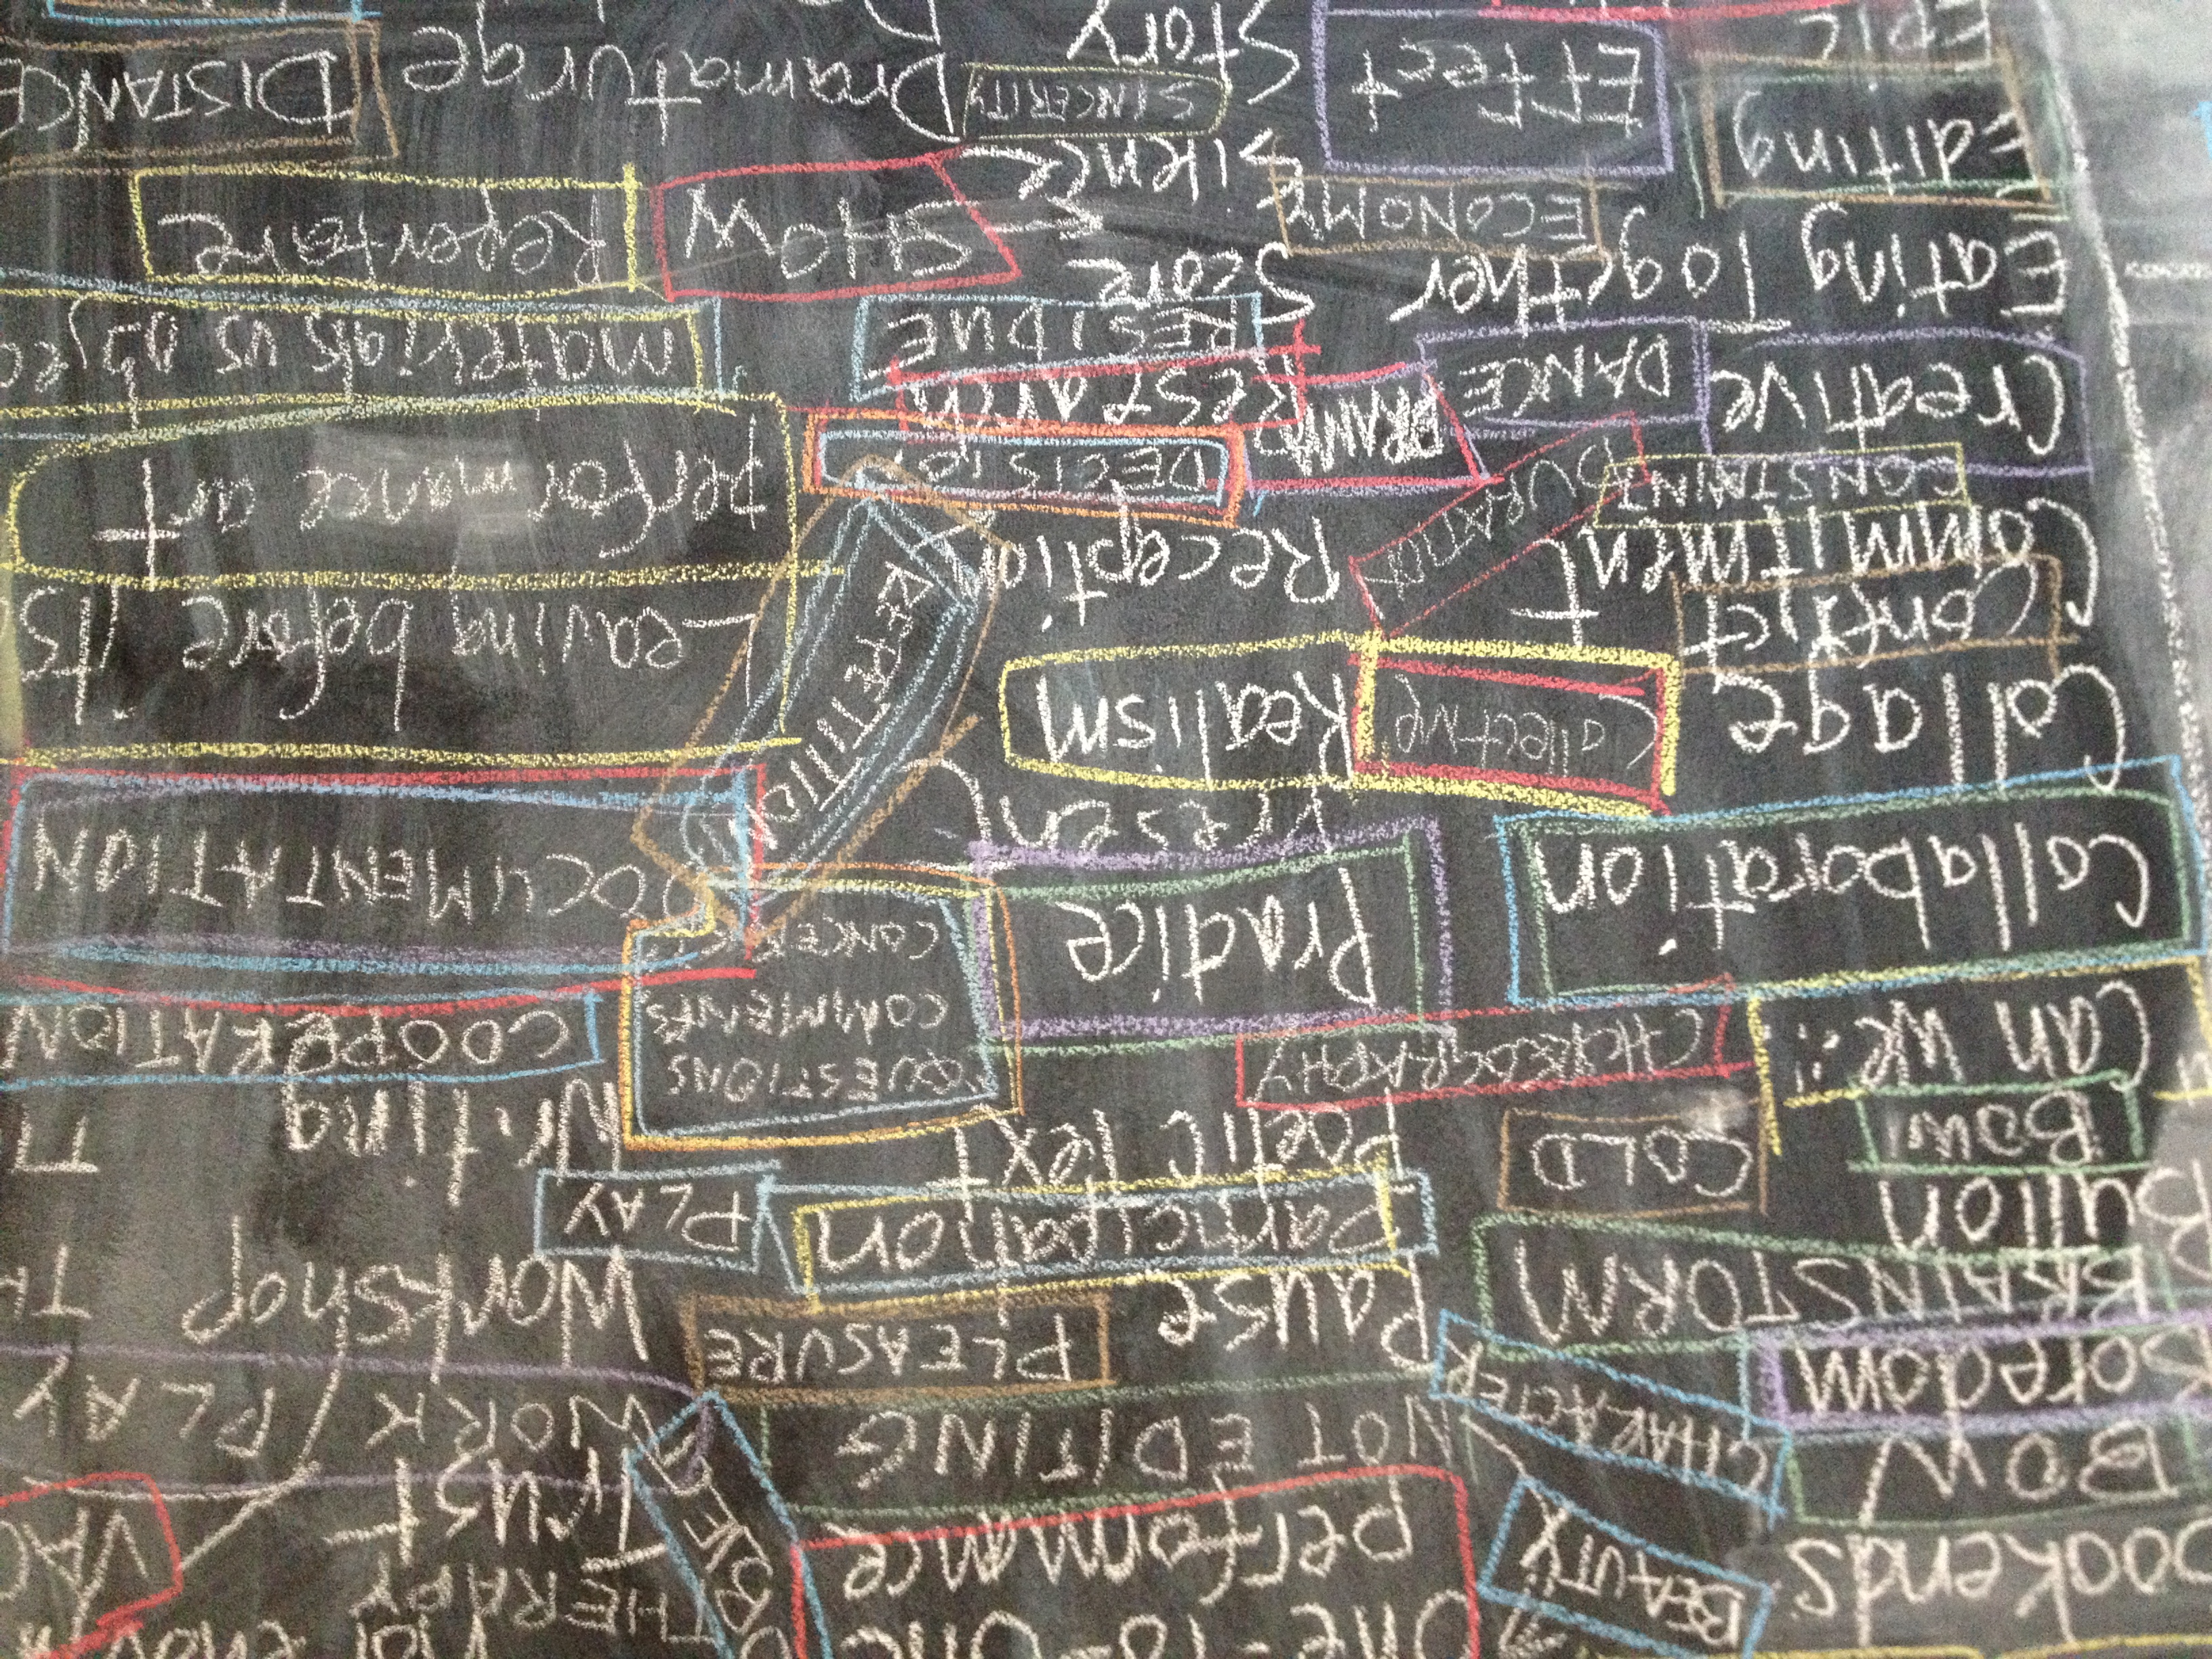 bookends
BOW
Boredom
BRAINSTORM
Bullon
BOW
Can we:
Collaboration
Collage
Conflict
Commitment
CONSTRAINT
Creative
Eating Together
Editing
Epic
BEAUTY
CHARACTER
COLD
CHOREOGRAPHY
Collective
DURATION
DANCE
DRAMA
ECONOMY
Effect
One-to-One
performance
NOT EDITING
Pause
PLEASURE
Participation
Poetic Text
Practice
Present
Realism
Reception
DECISION
RESTRAINT
RESIDUE
Score
Silence
SINCERITY
Story
QUESTIONS
COMMENTS
CONCERNS
REPETITION
SHOW
Dramaturge
THERAPY
Trust
WORK / PLAY
Workshop
PLAY
Writing
COOPERATION
DOCUMENTATION
leaving before its
performance art
materials vs objec
Repertoire
DISTANCE